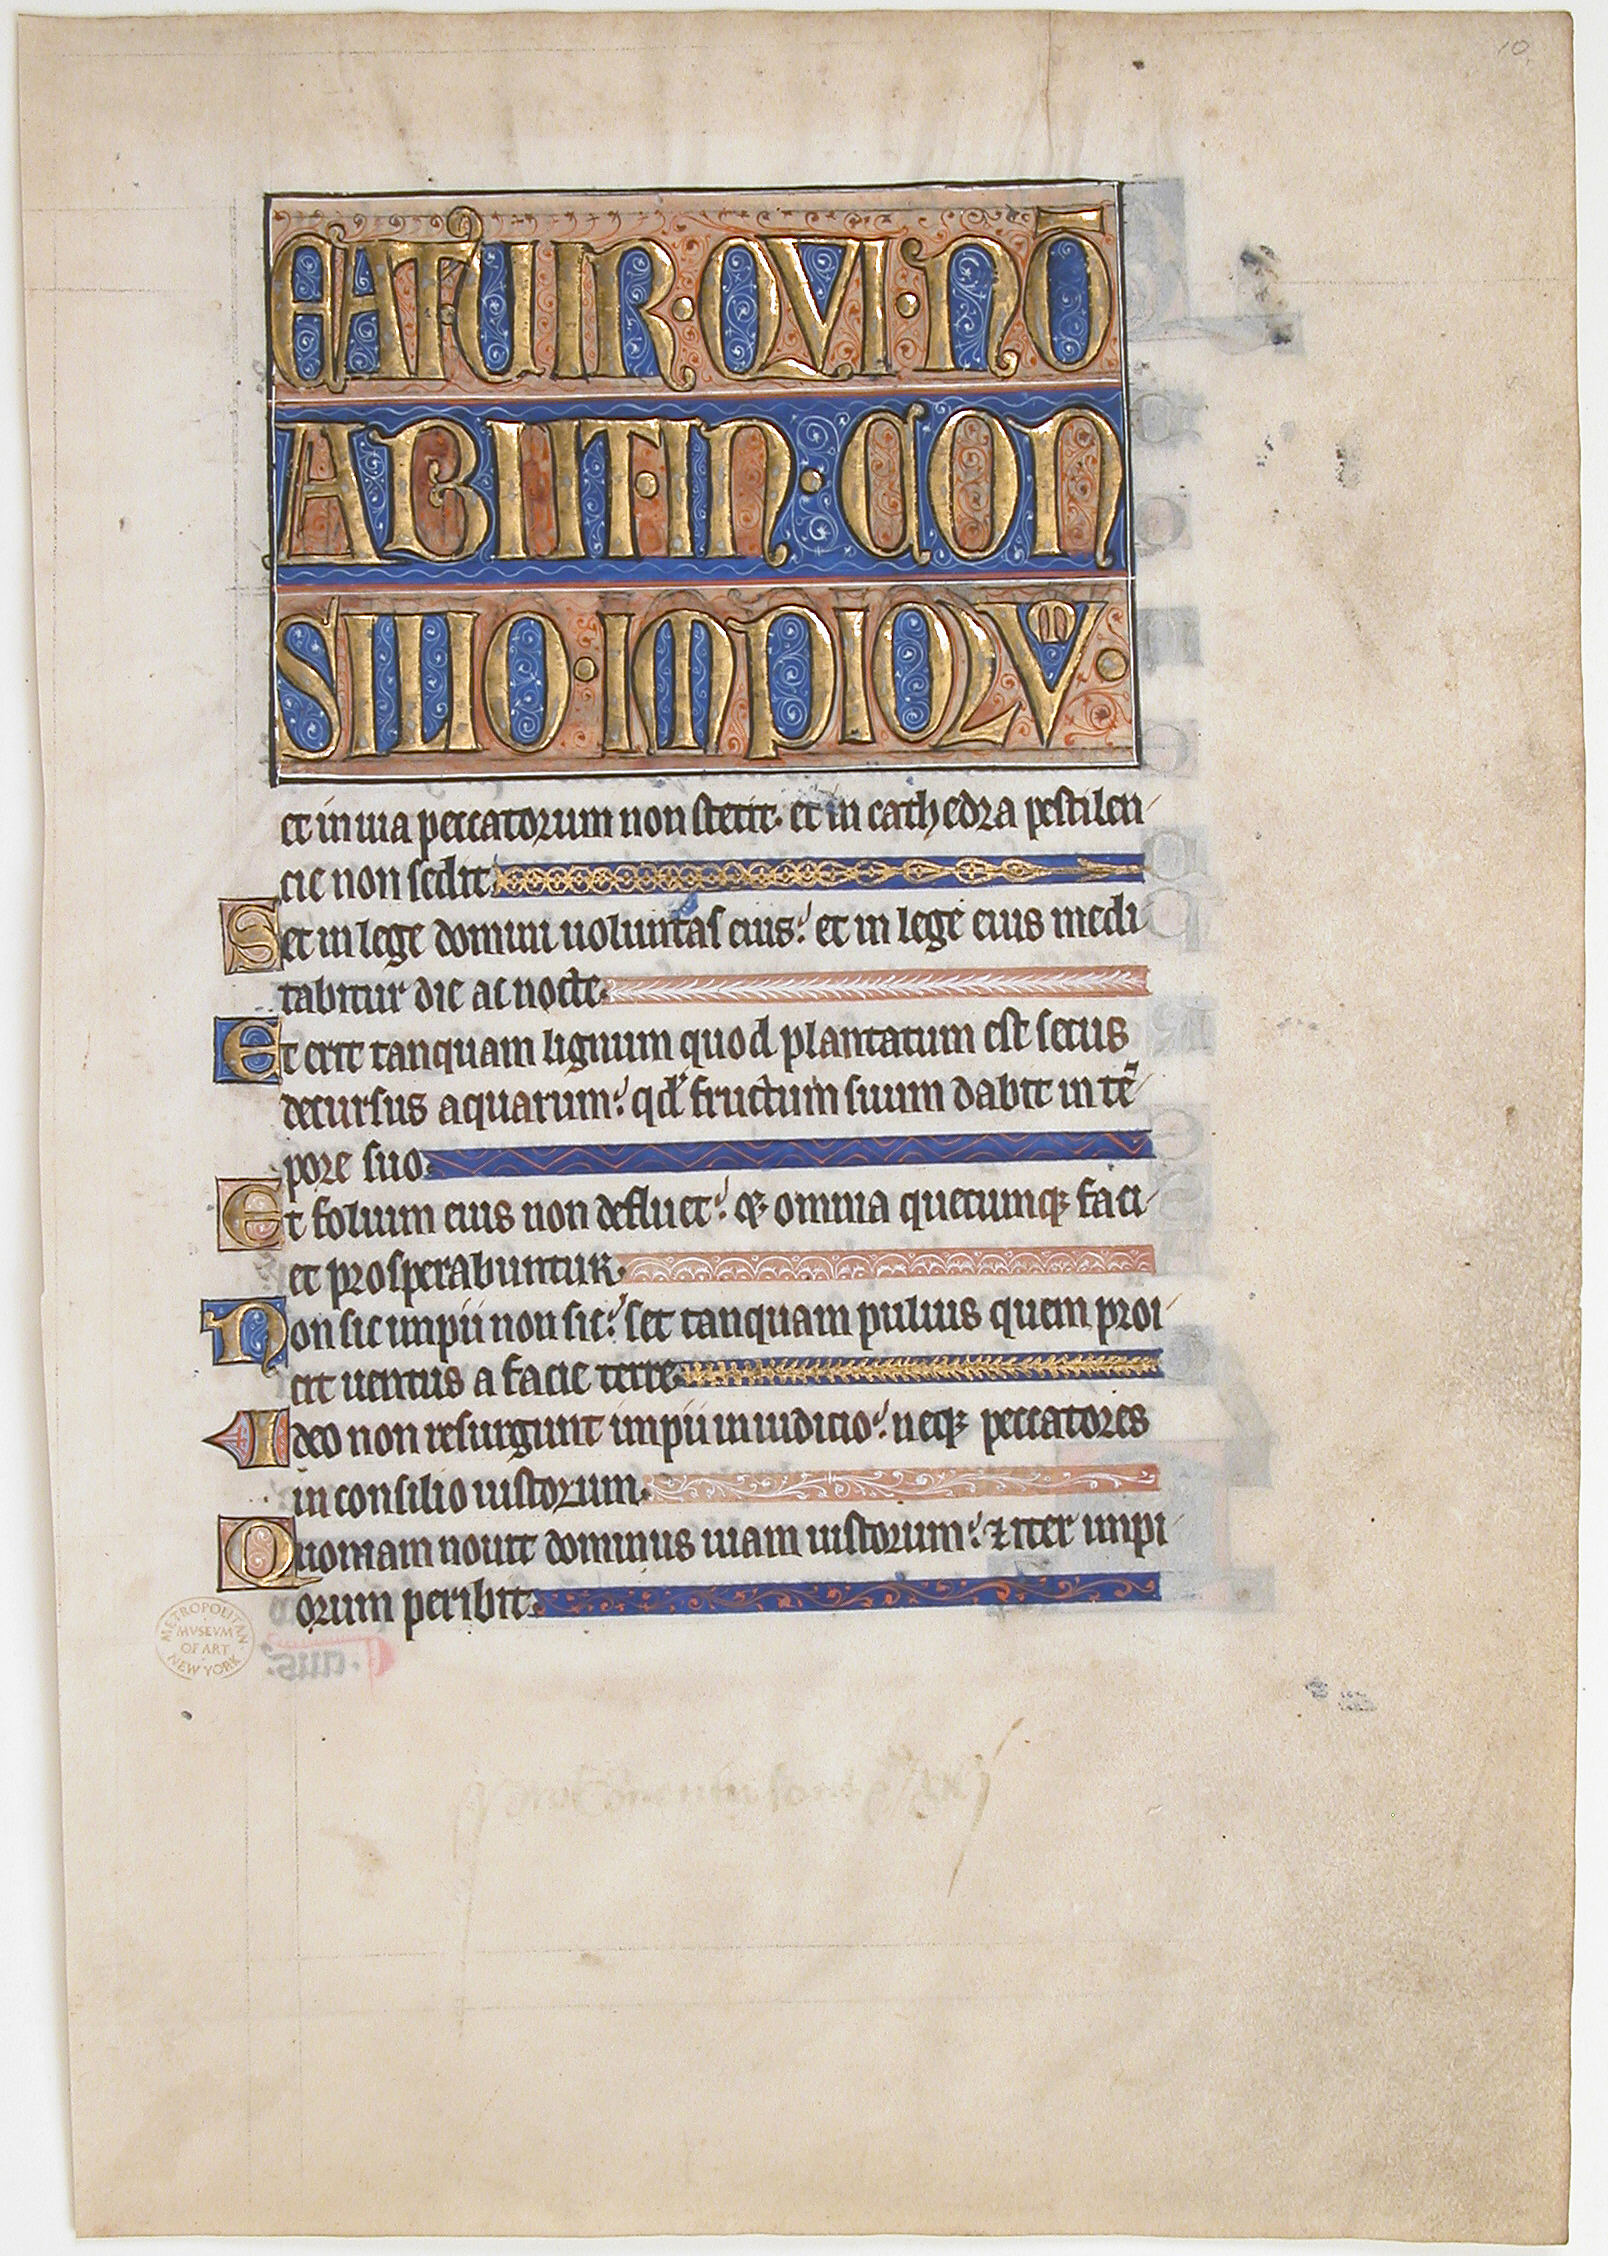 10
EATUIR·QVI·NŌ
ABIIT·IN·CON
SILIO·IMPIOꝜV̅·
et in uia peccatorum non stetit. et in cathedra pestilen
cie non sedit.
Set in lege domini uoluntas eius: et in lege eius medi
tabitur die ac nocte.
Et erit tanquam lignum quod plantatum est secus
decursus aquarum: qd' fructum suum dabit in tē
pore suo.
Et folium eius non defluet: & omnia quecumqꝫ faci
et prosperabuntur.
Non sic impii non sic: set tanquam puluis quem proi
cit uentus a facie terre.
Ideo non resurgunt impii in iudicio: neqꝫ peccatores
in consilio iustorum.
Quoniam nouit dominus uiam iustorum: ⁊ iter impi
orum peribit.
METROPOLITAN
MVSEVM
OF ART
NEW YORK